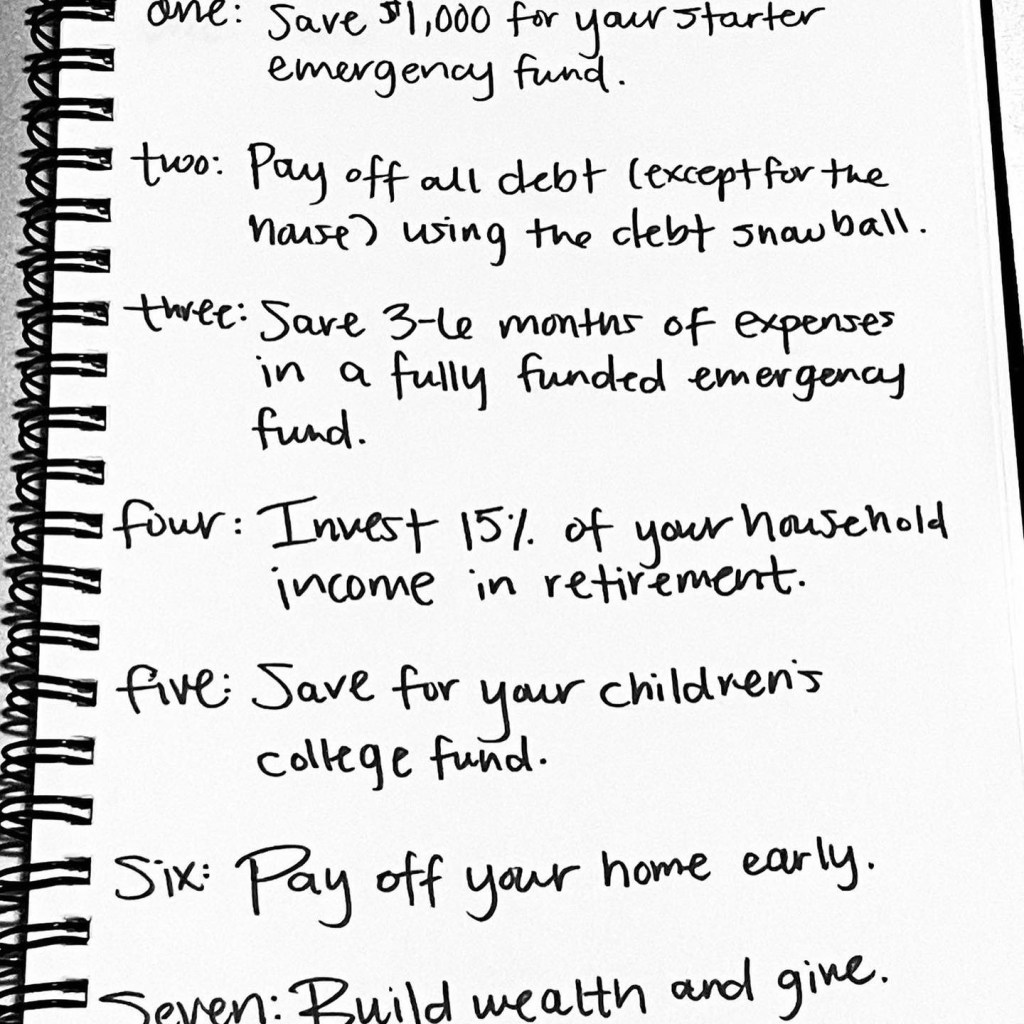 one: Save $1,000 for your starter
emergency fund.
two: Pay off all debt (except for the
house) using the debt snowball.
three: Save 3-6 months of expenses
in a fully funded emergency
fund.
four: Invest 15% of your household
income in retirement.
five: Save for your children's
college fund.
Six: Pay off your home early.
Seven: Build wealth and give.